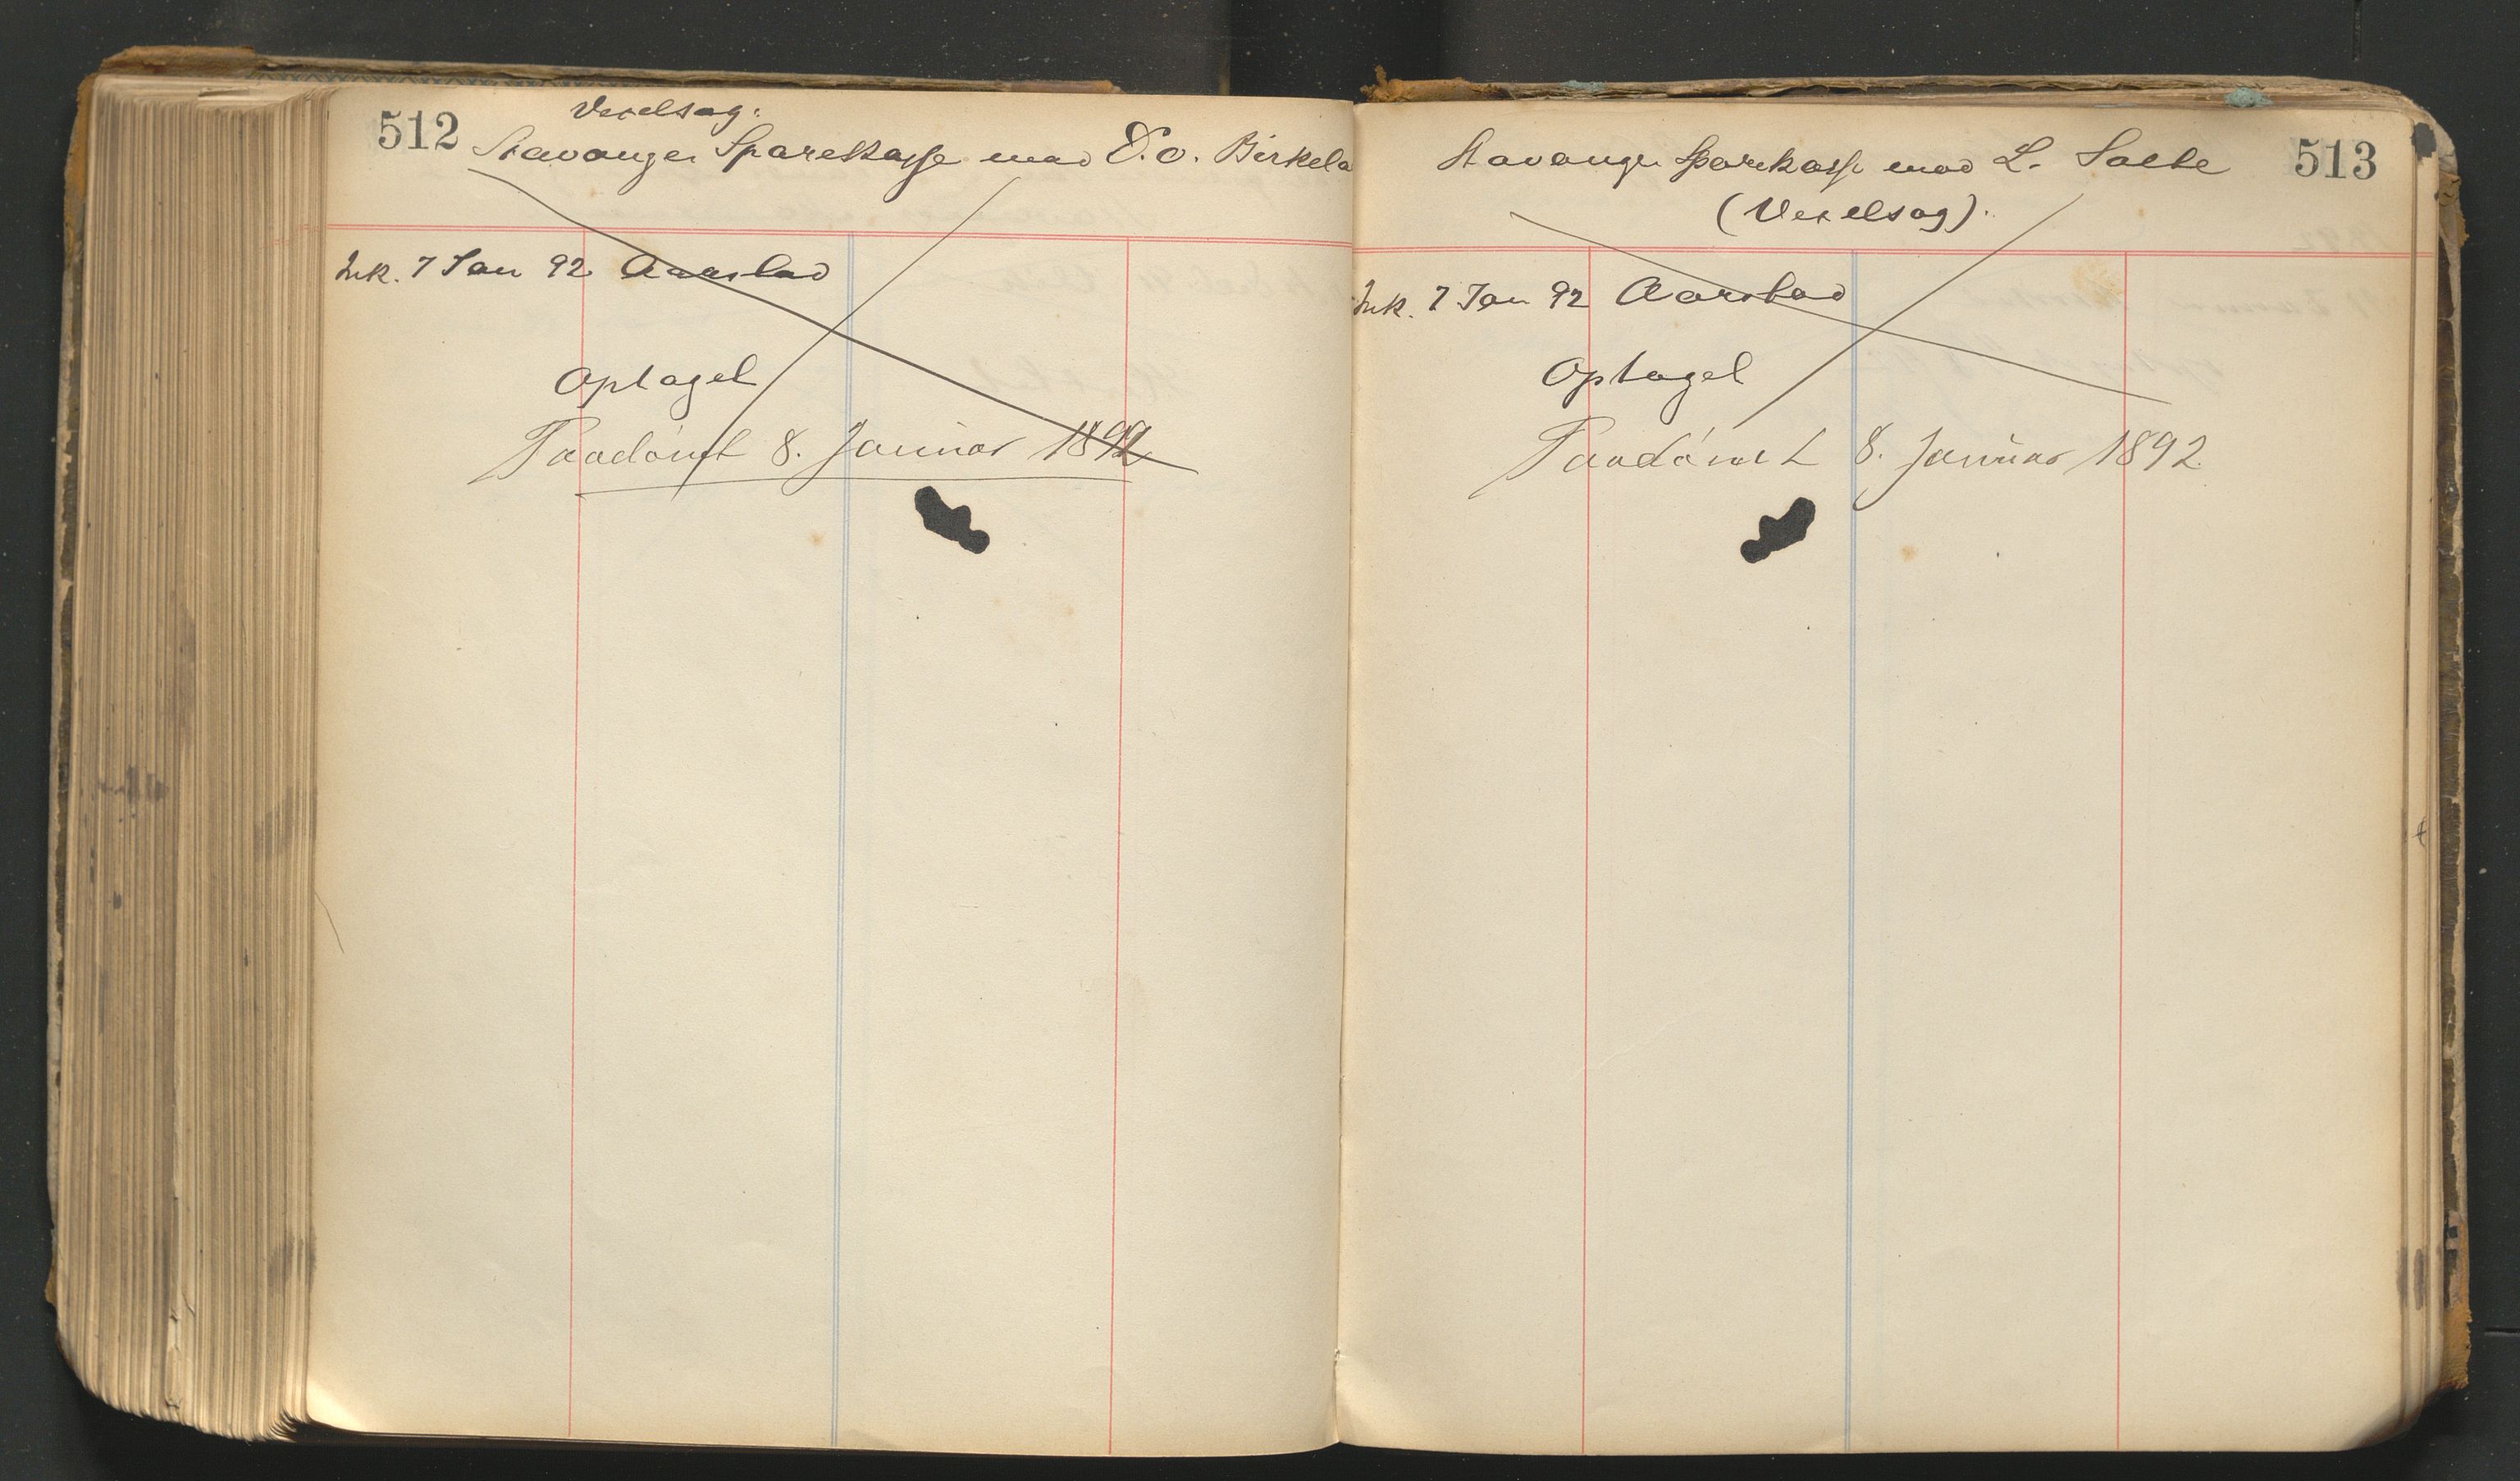 512
Vexelsag:
Stavanger Sparekasse mod O. Birkela
Ink. 7 Jan 92 Aarstad
Optaget
Paadömt 8. Januar 1892
Stavanger Sparekasse mod L. Salte
513
(Vexelsag).
Ink. 7 Jan 92 Aarstad
Optaget
Paadömt 8. Januar 1892.